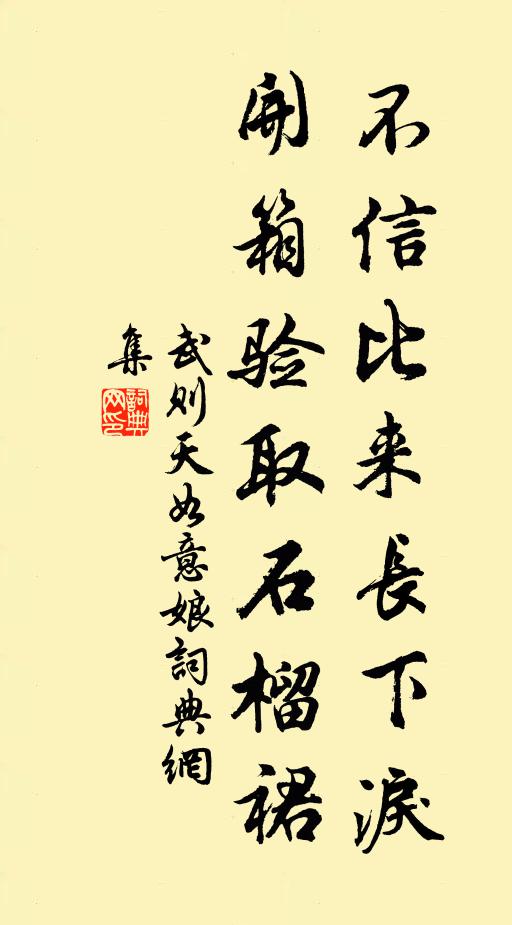 不信比来長下淚
開箱验取石榴裙
武则天如意娘詞典網
集
詞典網印